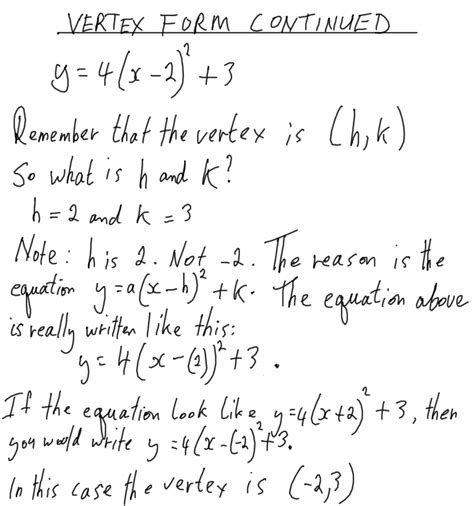 VERTEX FORM CONTINUED
y = 4(x-2)² + 3
Remember that the vertex is (h,k)
So what is h and k?
h = 2 and k = 3
Note: h is 2. Not -2. The reason is the
equation y = a(x-h)² + k. The equation above
is really written like this:
y = 4(x-(2))² + 3 .
If the equation look like y=4(x+2)² + 3, then
you would write y = 4(x-(-2)²+3.
In this case the vertex is (-2,3)